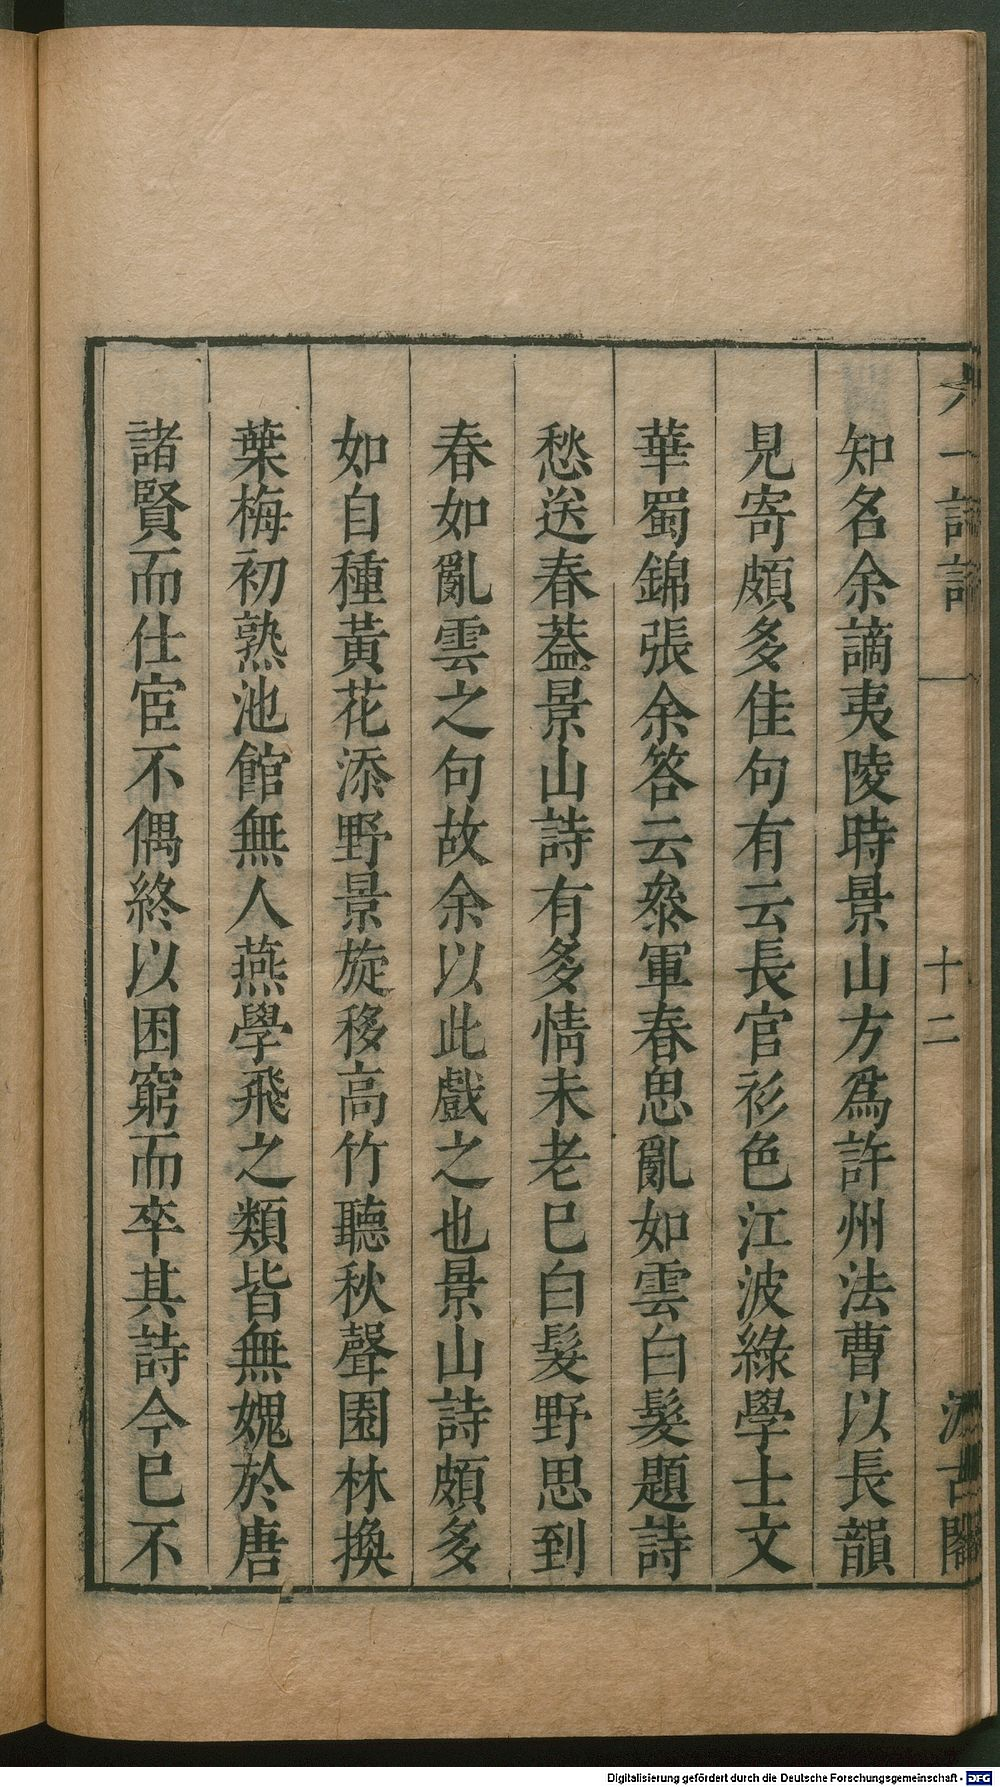 六一詩話
十二
汲古閣
知名余謫夷陵時景山方爲許州法曹以長韻
見寄頗多佳句有云長官衫色江波綠學士文
華蜀錦張余答云叅軍春思亂如雲白髮題詩
愁送春葢景山詩有多情未老已白髮野思到
春如亂雲之句故余以此戲之也景山詩頗多
如自種黃花添野景旋移高竹聽秋聲園林換
葉梅初熟池館無人燕學飛之類皆無媿於唐
諸賢而仕宦不偶終以困窮而卒其詩今已不
Digitalisierung gefördert durch die Deutsche Forschungsgemeinschaft - DFG